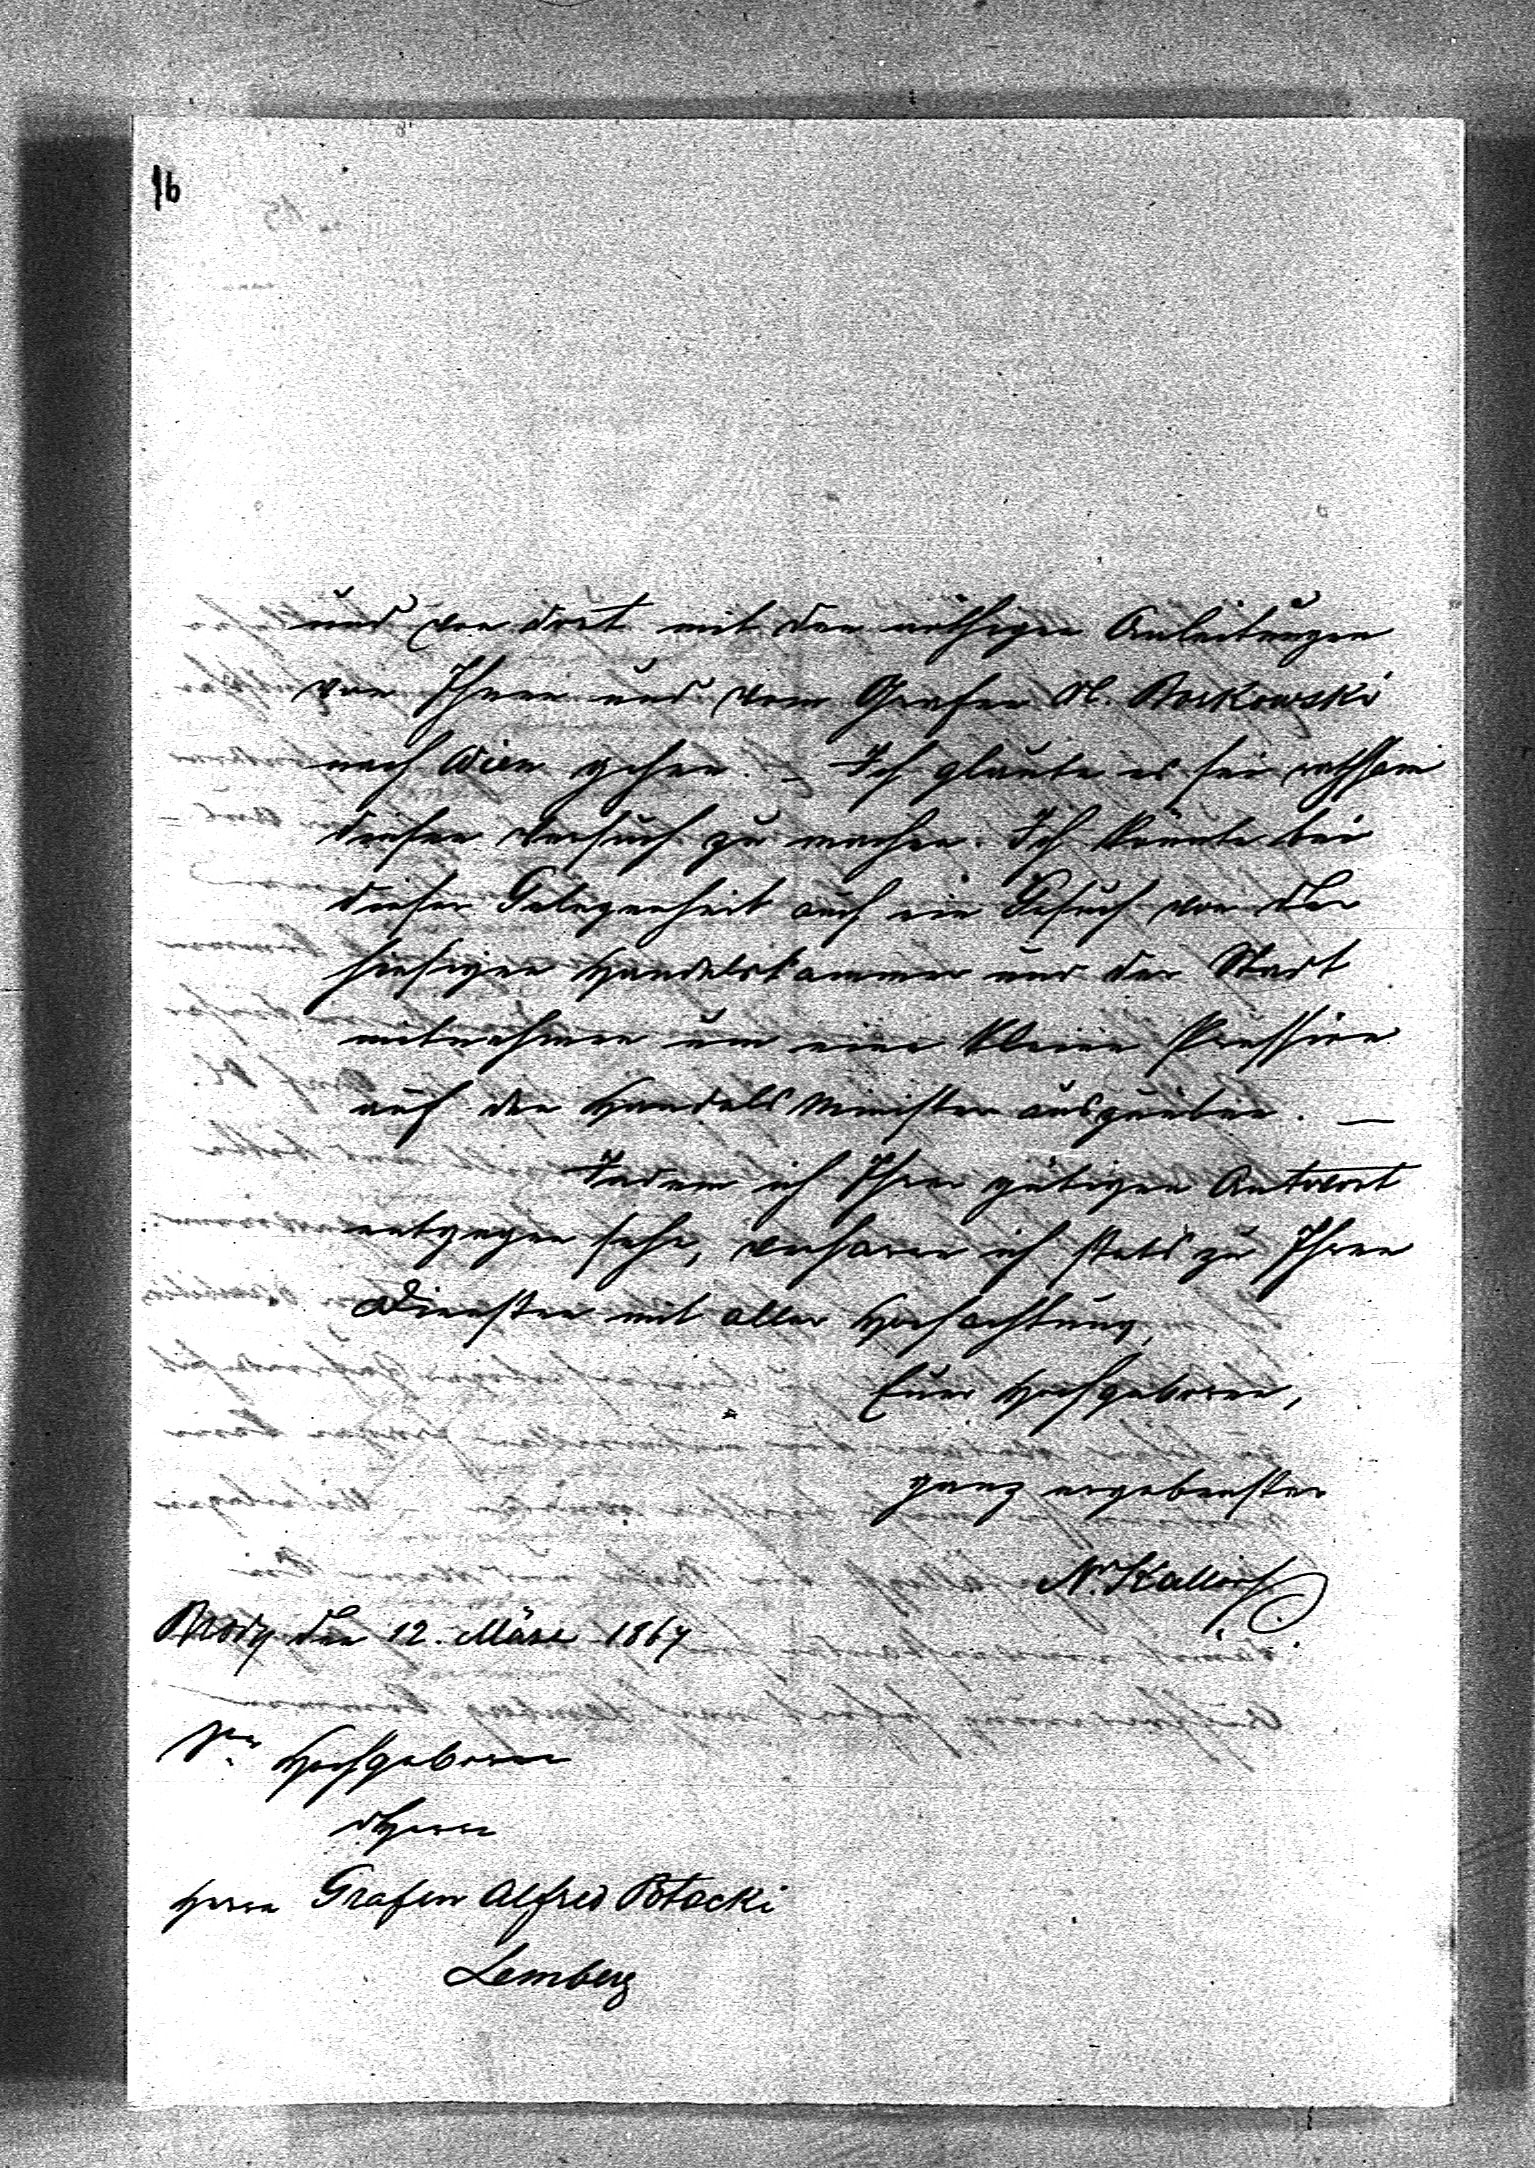 16
und von dort mit den nöthigen Anleitungen
von Ihnen und vom Grafen Wl. Borkowski
nach Wien gehen. – Ich glaube es sei rathsam
diesen Versuch zu machen. Ich könnte bei
dieser Gelegenheit auch ein Gesuch von der
hiesigen Handelskammer und der Stadt
mitnehmen um eine kleine Pression
auf den Handels Minister auszuüben. —
Indem ich Ihrer gütigen Antwort
entgegen sehe, verharre ich stets zu Ihren
Diensten mit aller Hochachtung,
Euer Hochgeboren,
ganz ergebenster
N. Kallir
Brody den 12. März 1867
Sr Hochgeboren
Herrn
Herrn Grafen Alfred Potocki
Lemberg